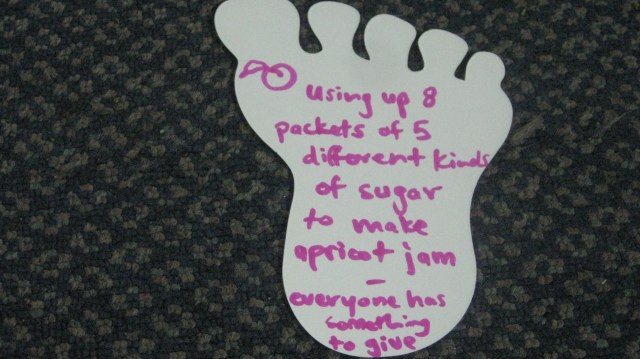 Using up 8
packets of 5
different kinds
of sugar
to make
apricot jam
–
everyone has
something
to give